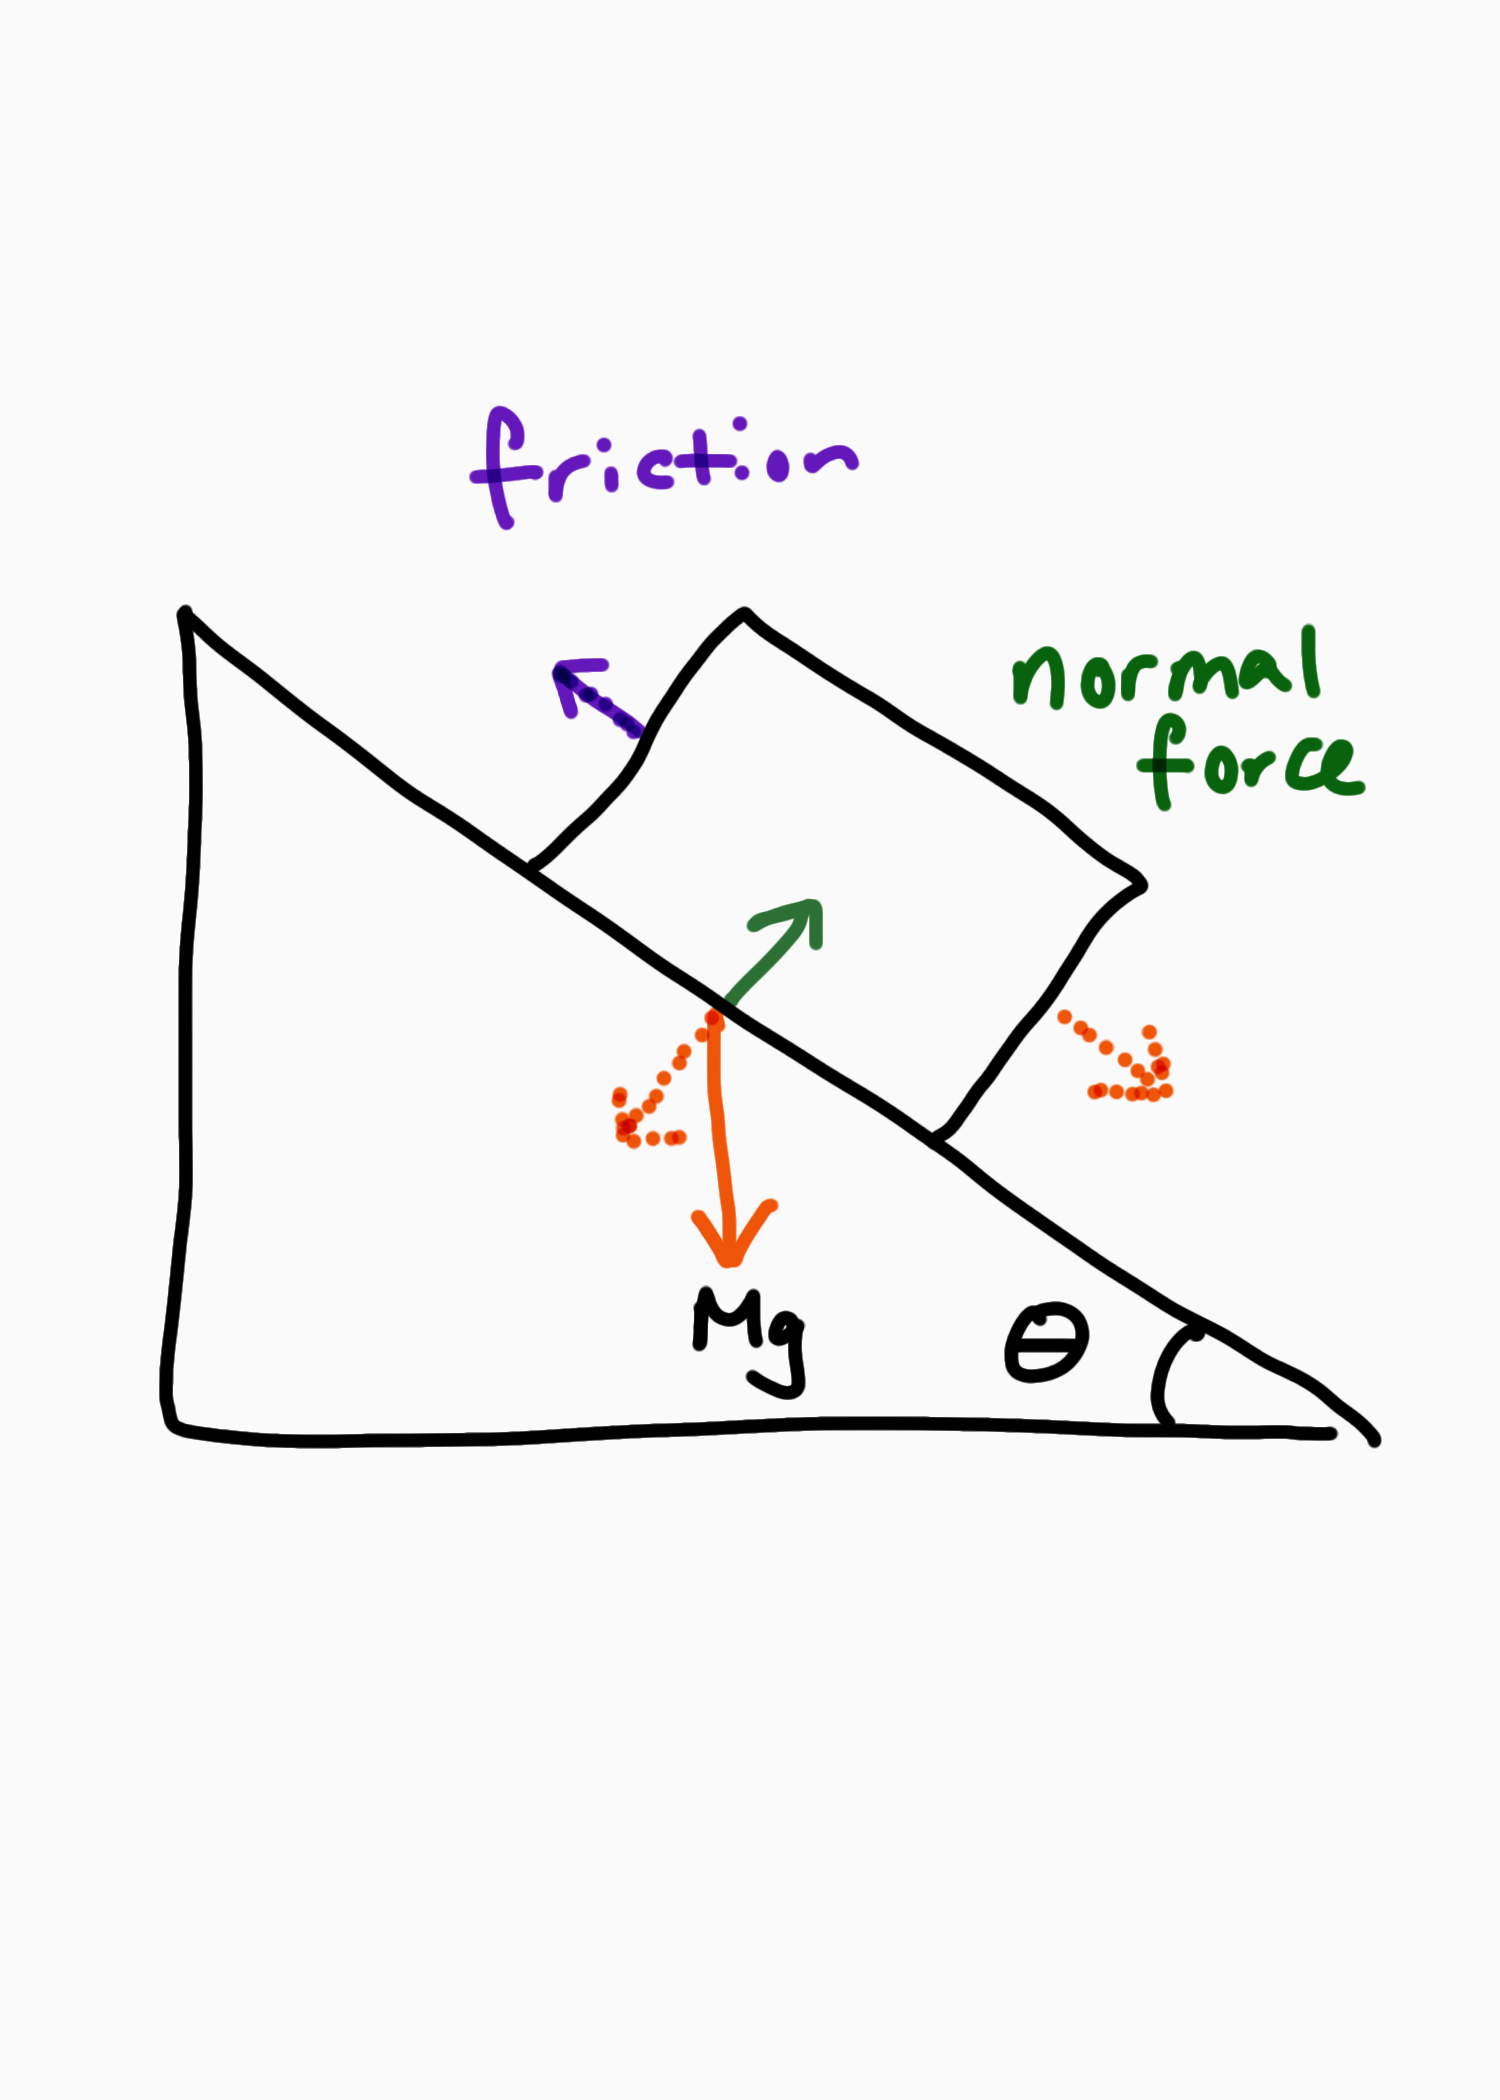 friction
normal
force
Mg
θ